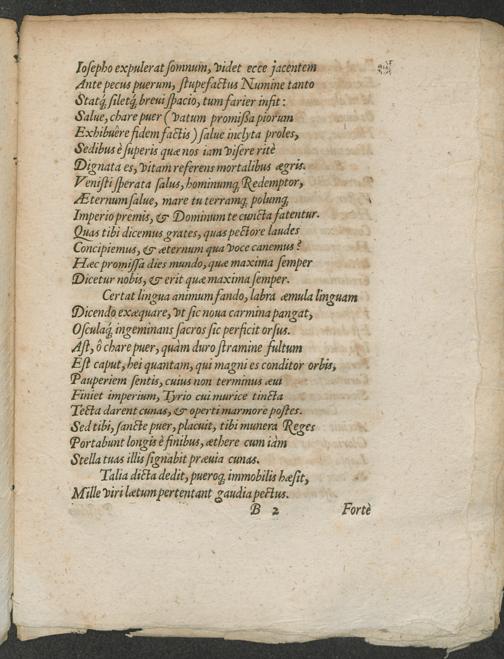 Iosepho expulerat somnum, videt ecce jacentem
Ante pecus puerum, stupefactus Numine tanto
Statq́, siletq́, breui spacio, tum farier infit:
Salue, chare puer (vatum promißa piorum
Exhibuêre fidem factis) salue inclyta proles,
Sedibus è superis quæ nos iam visere ritè
Dignata es, vitam referens mortalibus ægris.
Venisti sperata salus, hominumq́ Redemptor,
Æternum salue, mare tu terramq́, polumq́,
Imperio premis, & Dominum te cuncta fatentur.
Quas tibi dicemus grates, quas pectore laudes
Concipiemus, & æternum qua voce canemus?
Hæc promissa dies mundo, quæ maxima semper
Dicetur nobis, & erit quæ maxima semper.
Certat lingua animum fando, labra æmula linguam
Dicendo exæquare, vt sic noua carmina pangat,
Osculaq́, ingeminans sacros sic perficit orsus.
Ast, ô chare puer, quàm duro stramine fultum
Est caput, hei quantam, qui magni es conditor orbis,
Pauperiem sentis, cuius non terminus æui
Finiet imperium, Tyrio cui murice tincta
Tecta darent cunas, & operti marmore postes.
Sed tibi, sancte puer, placuit, tibi munera Reges
Portabunt longis è finibus, æthere cum iàm
Stella tuas illis signabit præuia cunas.
Talia dicta dedit, pueroq́, immobilis hæsit,
Mille viri lætum pertentant gaudia pectus.
B 2 Fortè